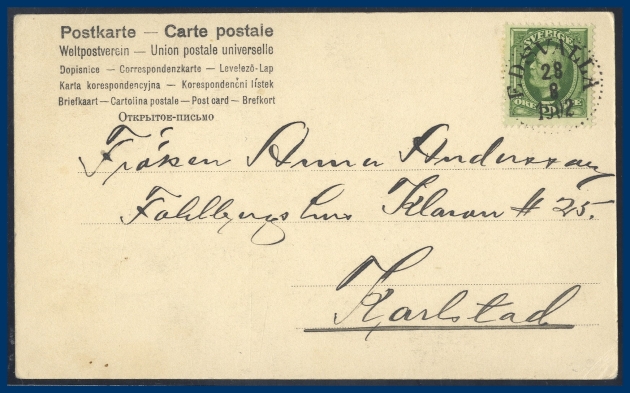 Postkarte – Carte postale
Weltpostverein – Union postale universelle
Dopisnice – Correspondenzkarte – Levelező-Lap
Karta korespondencyjna – Korespondenční lístek
Briefkaart – Cartolina postale – Post card – Brefkort
Открытое-письмо
SVERIGE
EDSVALLA
28
8
1902
Fröken Anna Andersson
Klaran # 25.
Karlstad